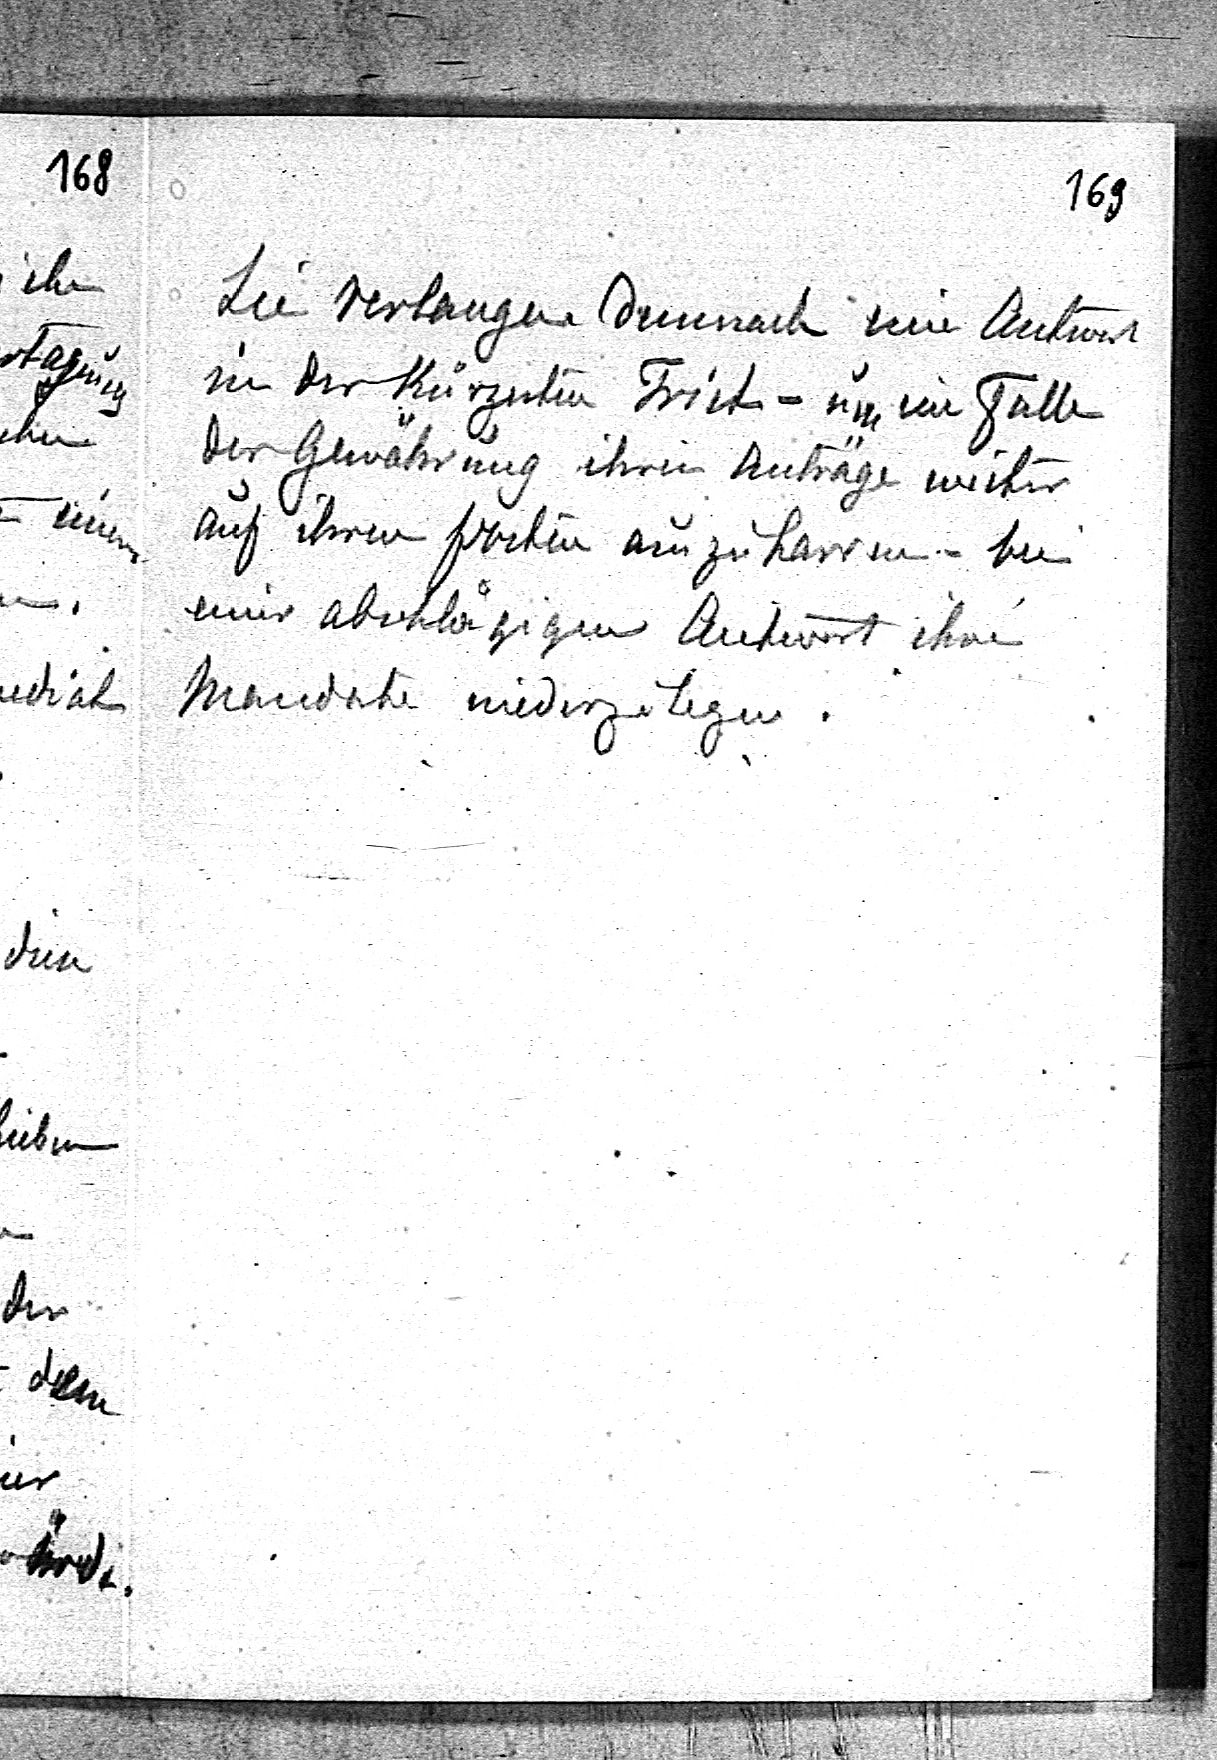 168
ihr
rtagung
chen
einem
n.
ediat
dien
heiben
der
dem
ier
würde.
169
Sie verlangen demnach eine Antwort
in der kürzesten Frist - um im Falle
der Gewährung ihrer Anträge weiter
auf ihren posten auszuharren - bei
einer abschlägigen Antwort ihre
Mandate niederzulegen.